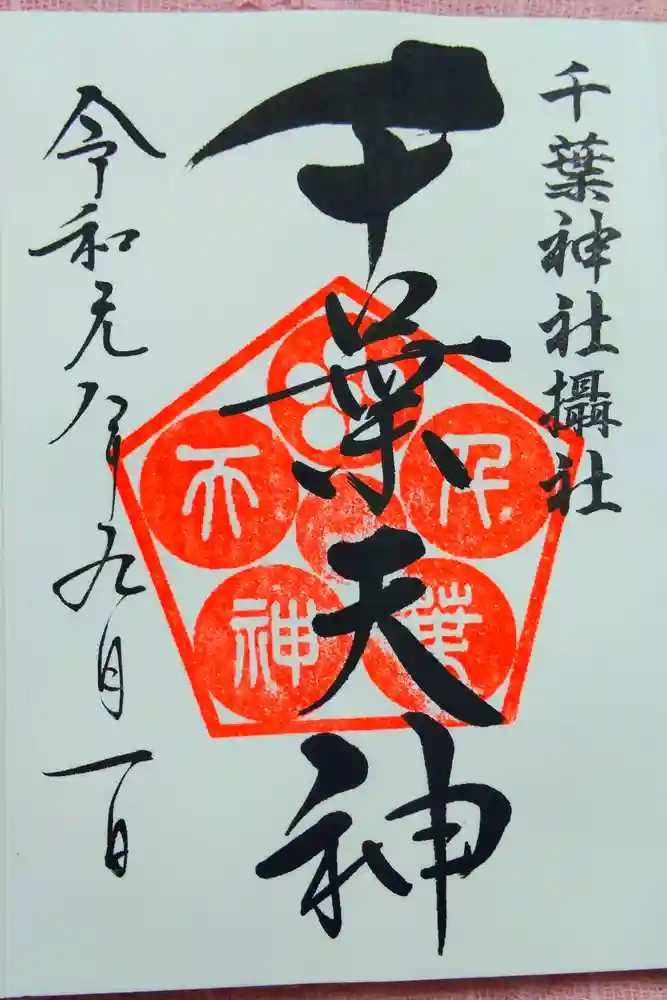 千葉神社攝社
千葉天神
令和元年九月一日
千葉
天神